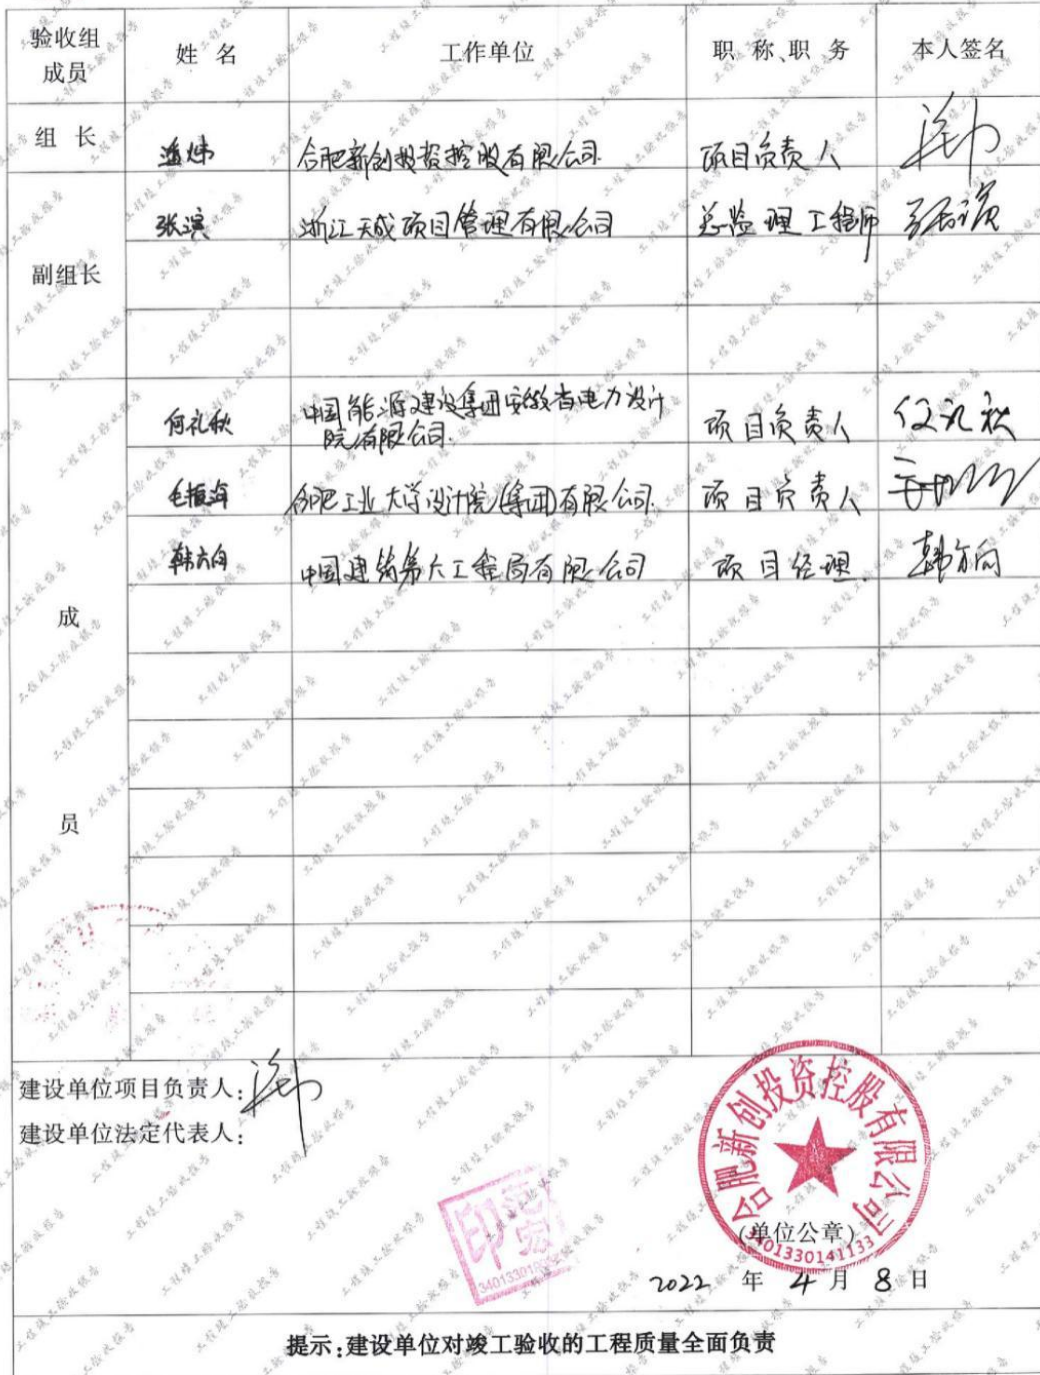 验收组成员 姓 名 工作单位 职 称、职 务 本人签名
组 长 合肥新创投资控股有限公司 项目负责人
副组长 张滨 浙江天成项目管理有限公司 总监理工程师 张滨
成员
何礼秋 中国能源建设集团安徽省电力设计
院有限公司. 项目负责人 何礼秋
毛振海 合肥工业大学设计院(集团)有限公司. 项目负责人
韩方向 中国建筑第六工程局有限公司 项目经理. 韩方向
建设单位项目负责人:
建设单位法定代表人:
合肥新创投资控股有限公司
(单位公章)
3401330141133
2022 年 4 月 8 日
提示:建设单位对竣工验收的工程质量全面负责
工程竣工验收报告